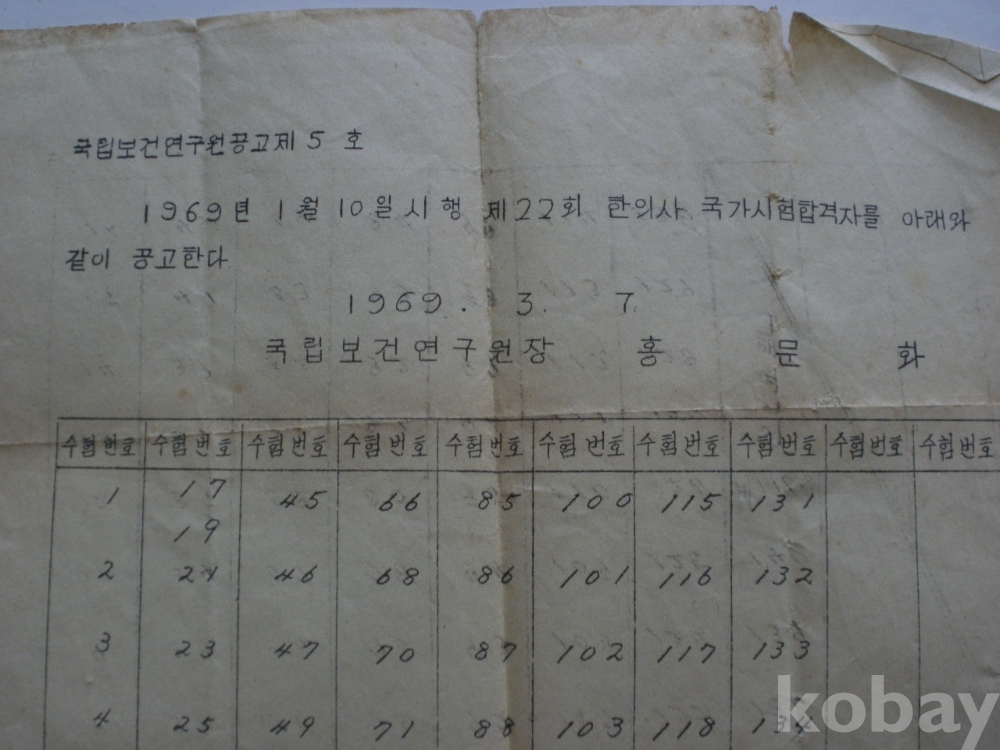 국립보건연구원공고제 5 호
1969년 1월 10일 시행 제22회 한의사 국가시험합격자를 아래와
같이 공고한다
1969. 3. 7.
국립보건연구원장 홍 문 화
수험번호 수험번호 수험번호 수험번호 수험번호 수험번호 수험번호 수험번호 수험번호 수험번호
1 17 45 66 85 100 115 131
19
2 21 46 68 86 101 116 132
3 23 47 70 87 102 117 133
4 25 49 71 88 103 118 134
kobay